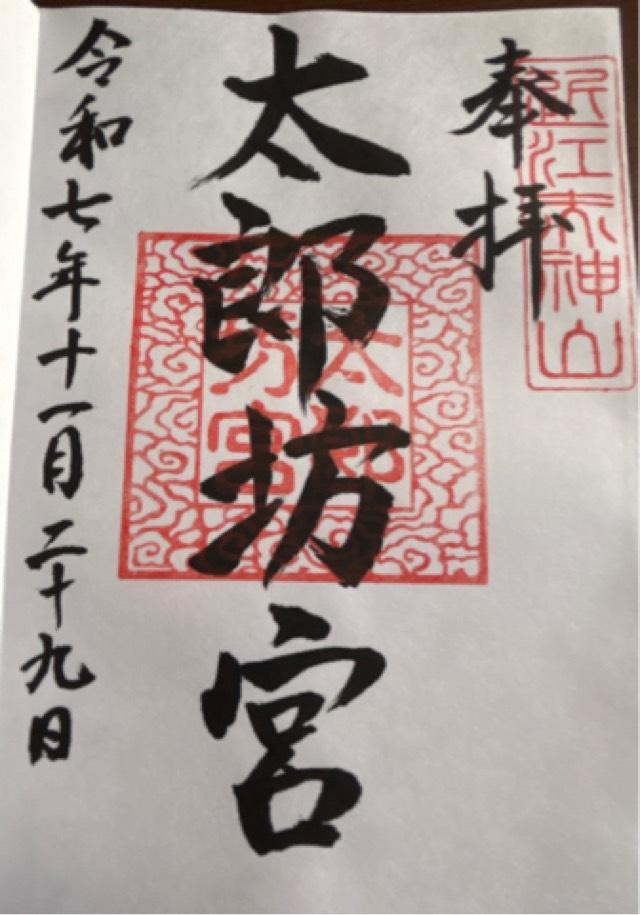 奉拝
近江赤神山
太郎坊宮
太郎坊宮
令和七年十一月二十九日